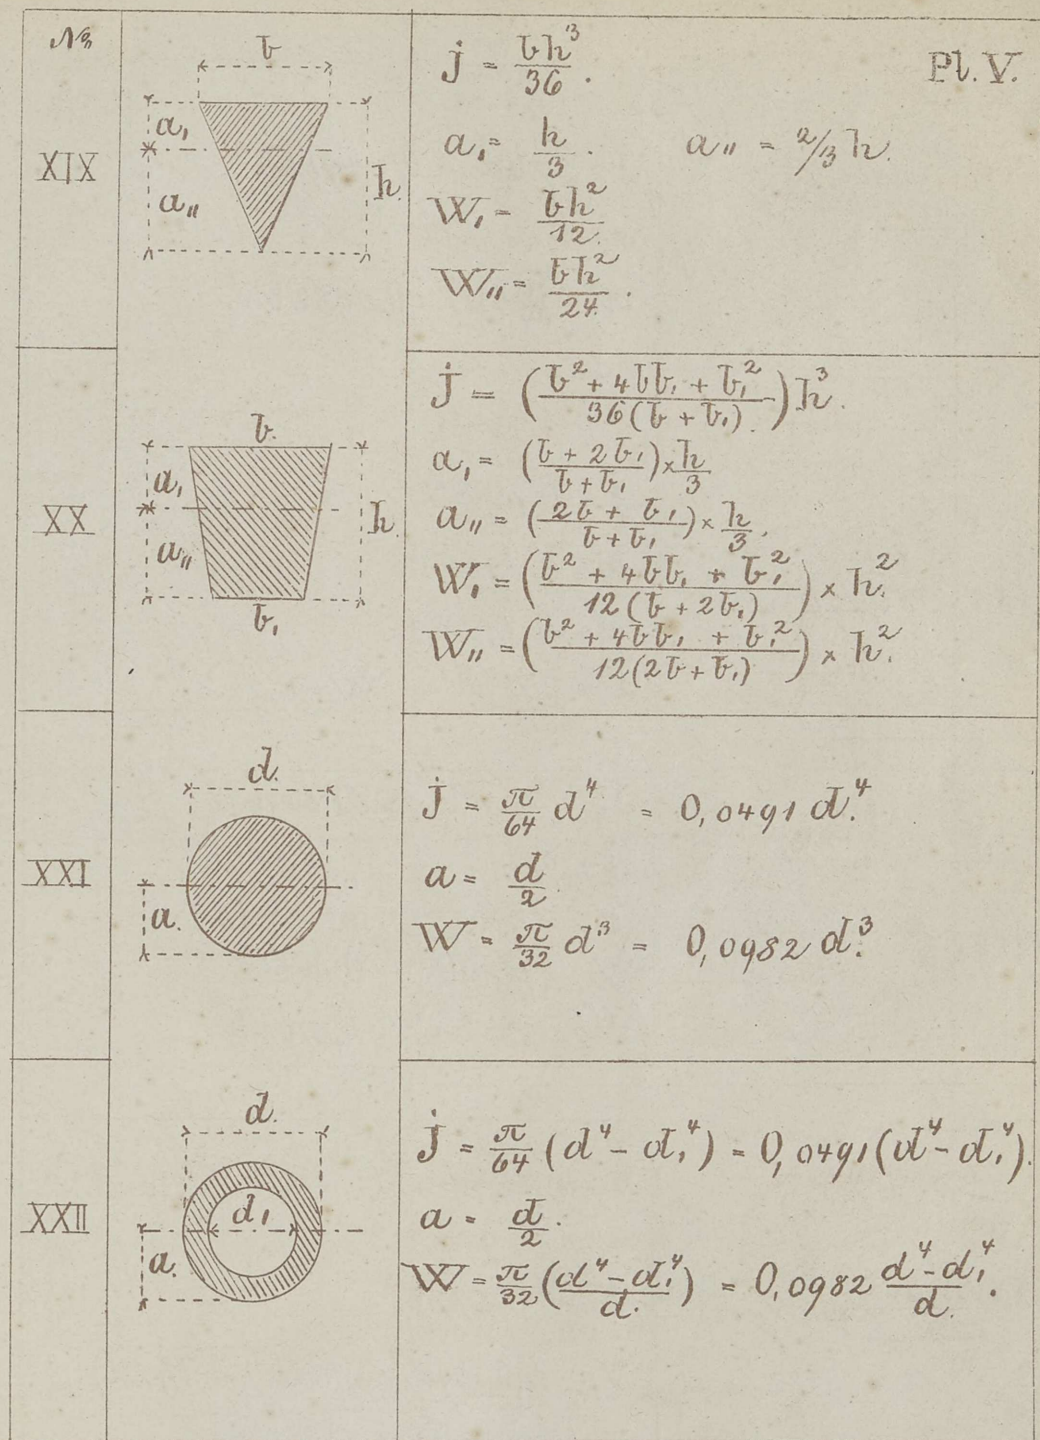 No
Pl. V.
XIX
b
a,
a,,
h.
j = bh³/36.
a, = h/3. a,, = 2/3 h.
W, = bh²/12.
W,, = bh²/24.
XX
b.
a,
a,,
h.
b,
j = (b² + 4bb, + b,²/36(b + b,).) h³.
a, = (b + 2b,/b + b,) × h/3
a,, = (2b + b,/b + b,) × h/3.
W, = (b² + 4bb, + b,²/12(b + 2b,)) × h².
W,, = (b² + 4bb, + b,²/12(2b + b,)) × h².
XXI
d.
a.
j = π/64 d⁴ = 0,0491 d.⁴
a = d/2.
W = π/32 d³ = 0,0982 d.³
XXII
d.
d,
a.
j = π/64 (d⁴ - d,⁴) = 0,0491 (d⁴ - d,⁴).
a = d/2.
W = π/32 (d⁴ - d,⁴/d.) = 0,0982 d⁴ - d,⁴/d..